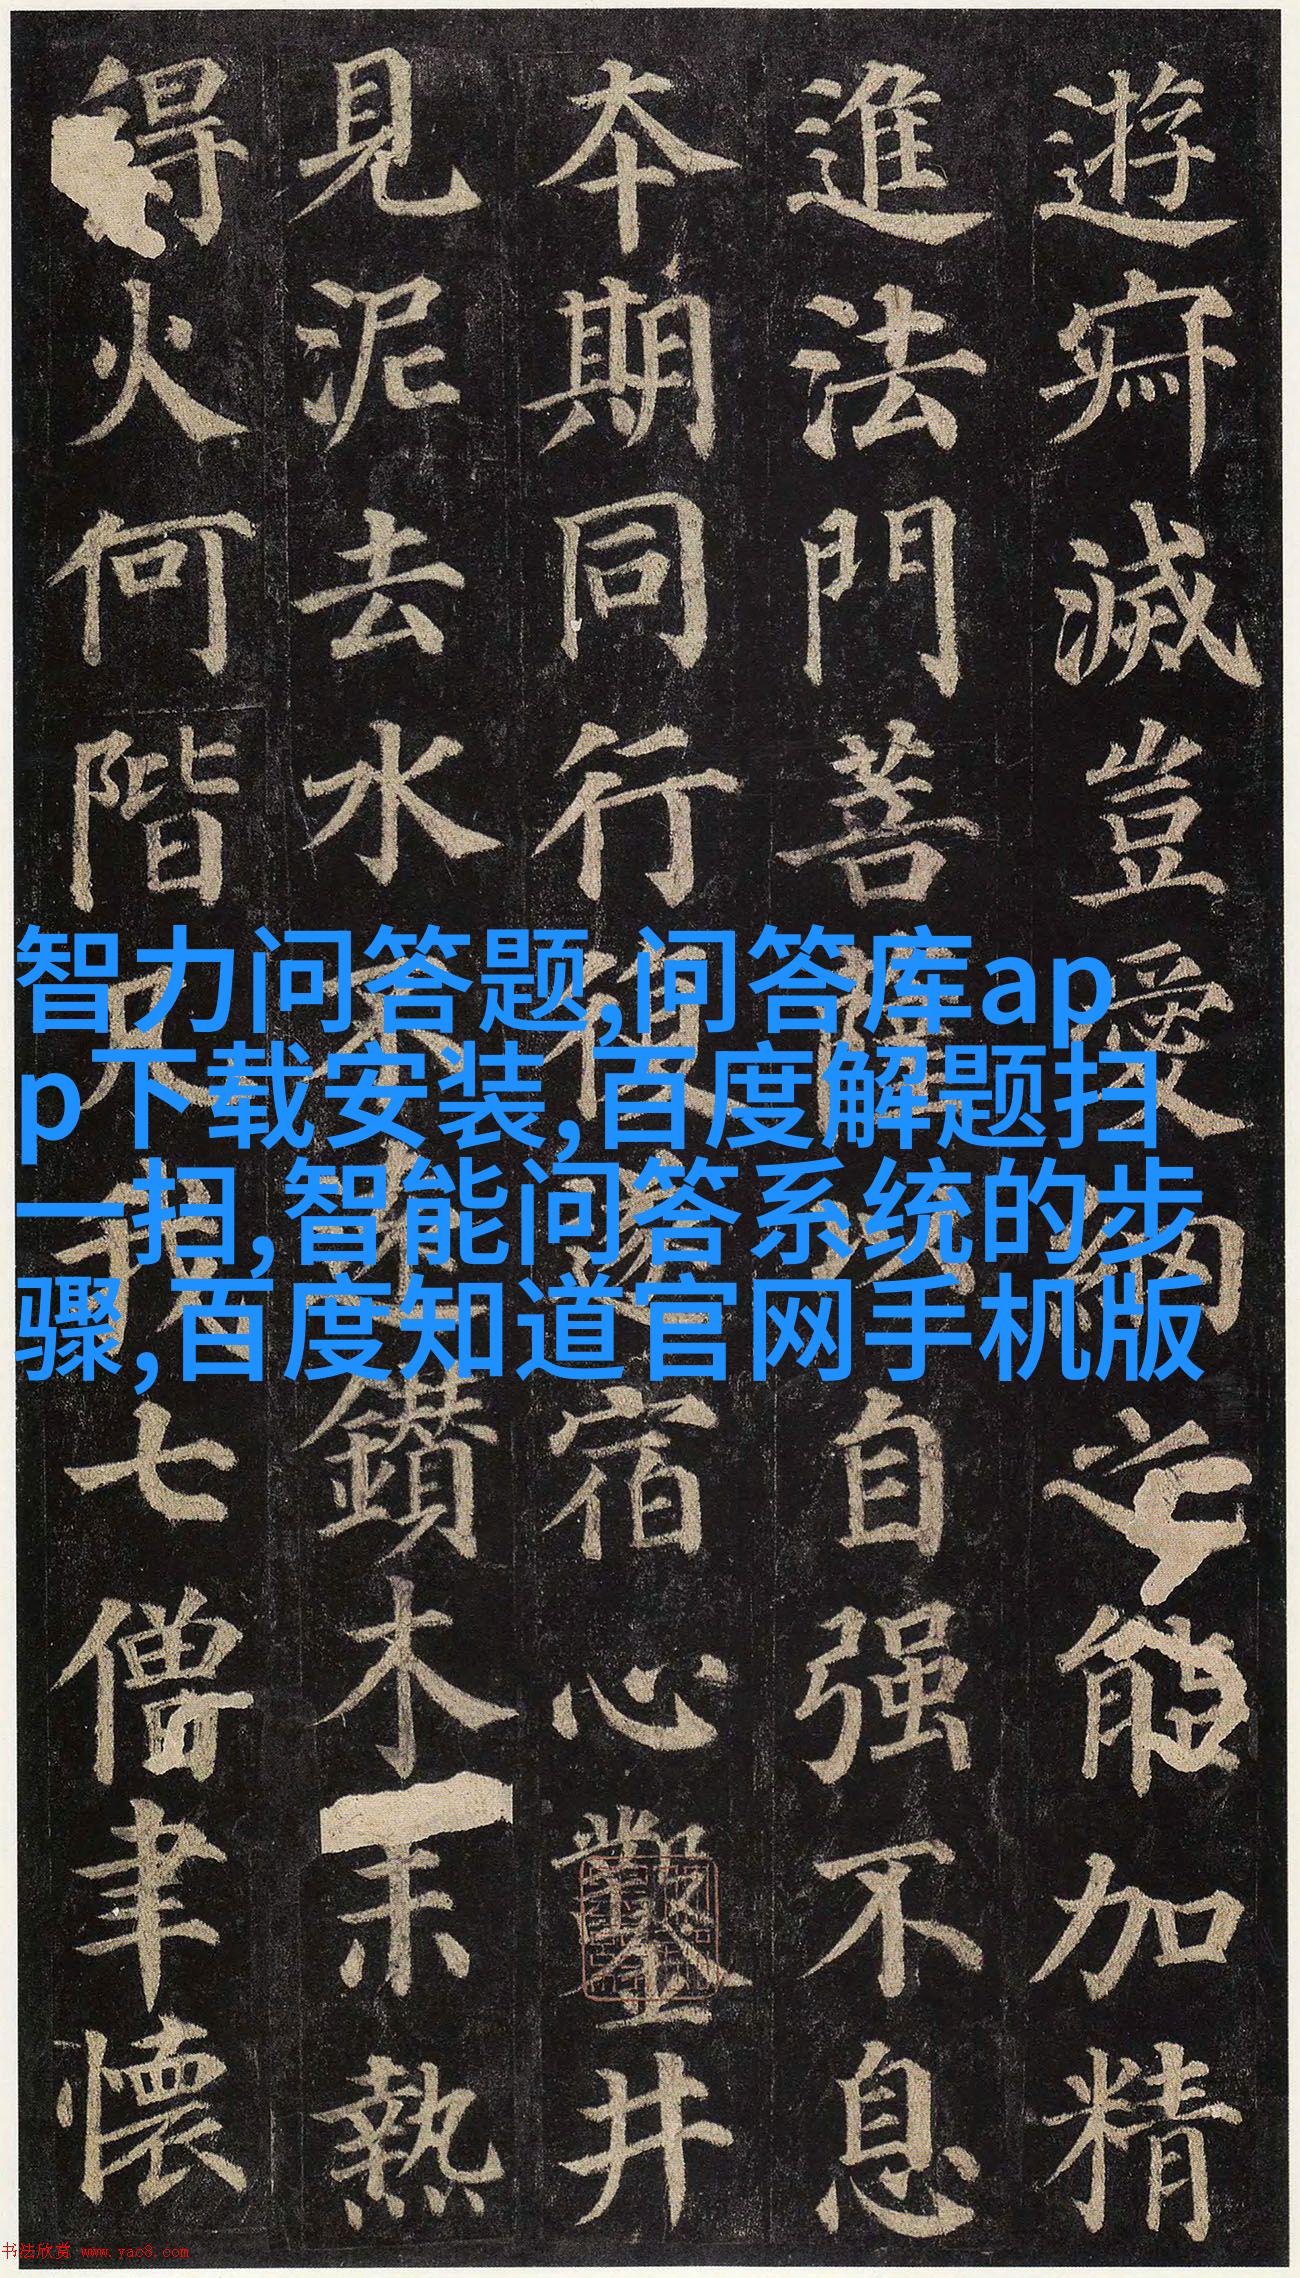 遊寂滅豈愛網之能加精
進法門菩薩以自强不息
本期同行復遂宿心鑿井
見泥去水不遠鑽木未熱
得火何階凡我七僧聿懷
智力问答题,问答库ap
p下载安装,百度解题扫
一扫,智能问答系统的步
骤,百度知道官网手机版
书法欣赏 www.yac8.com